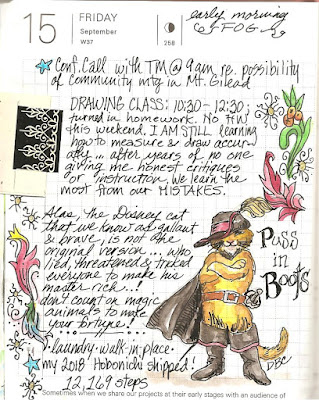 15 FRIDAY
September
W37
258
early morning
FOG
Conf. Call with TM @ 9am re. possibility
of Community mtg in Mt. Gilead
DRAWING CLASS: 10:30-12:30;
turned in homework. No HW
this weekend. I AM STILL learning
how to measure & draw accur-
ately... after years of no one
giving me honest critiques
or instruction. We learn the
most from our MISTAKES.
Alas, the Disney cat
that we know as gallant
& brave, is not the
original version... who
lied, threatened & tricked
everyone to make his
master rich..!
don't count on magic
animals to make
your fortune!
Puss
in
Boots
DBC
·laundry·walk-in-place·
my 2018 Hobonichi shipped!
12,169 steps
Sometimes when we share our projects at their early stages with an audience of